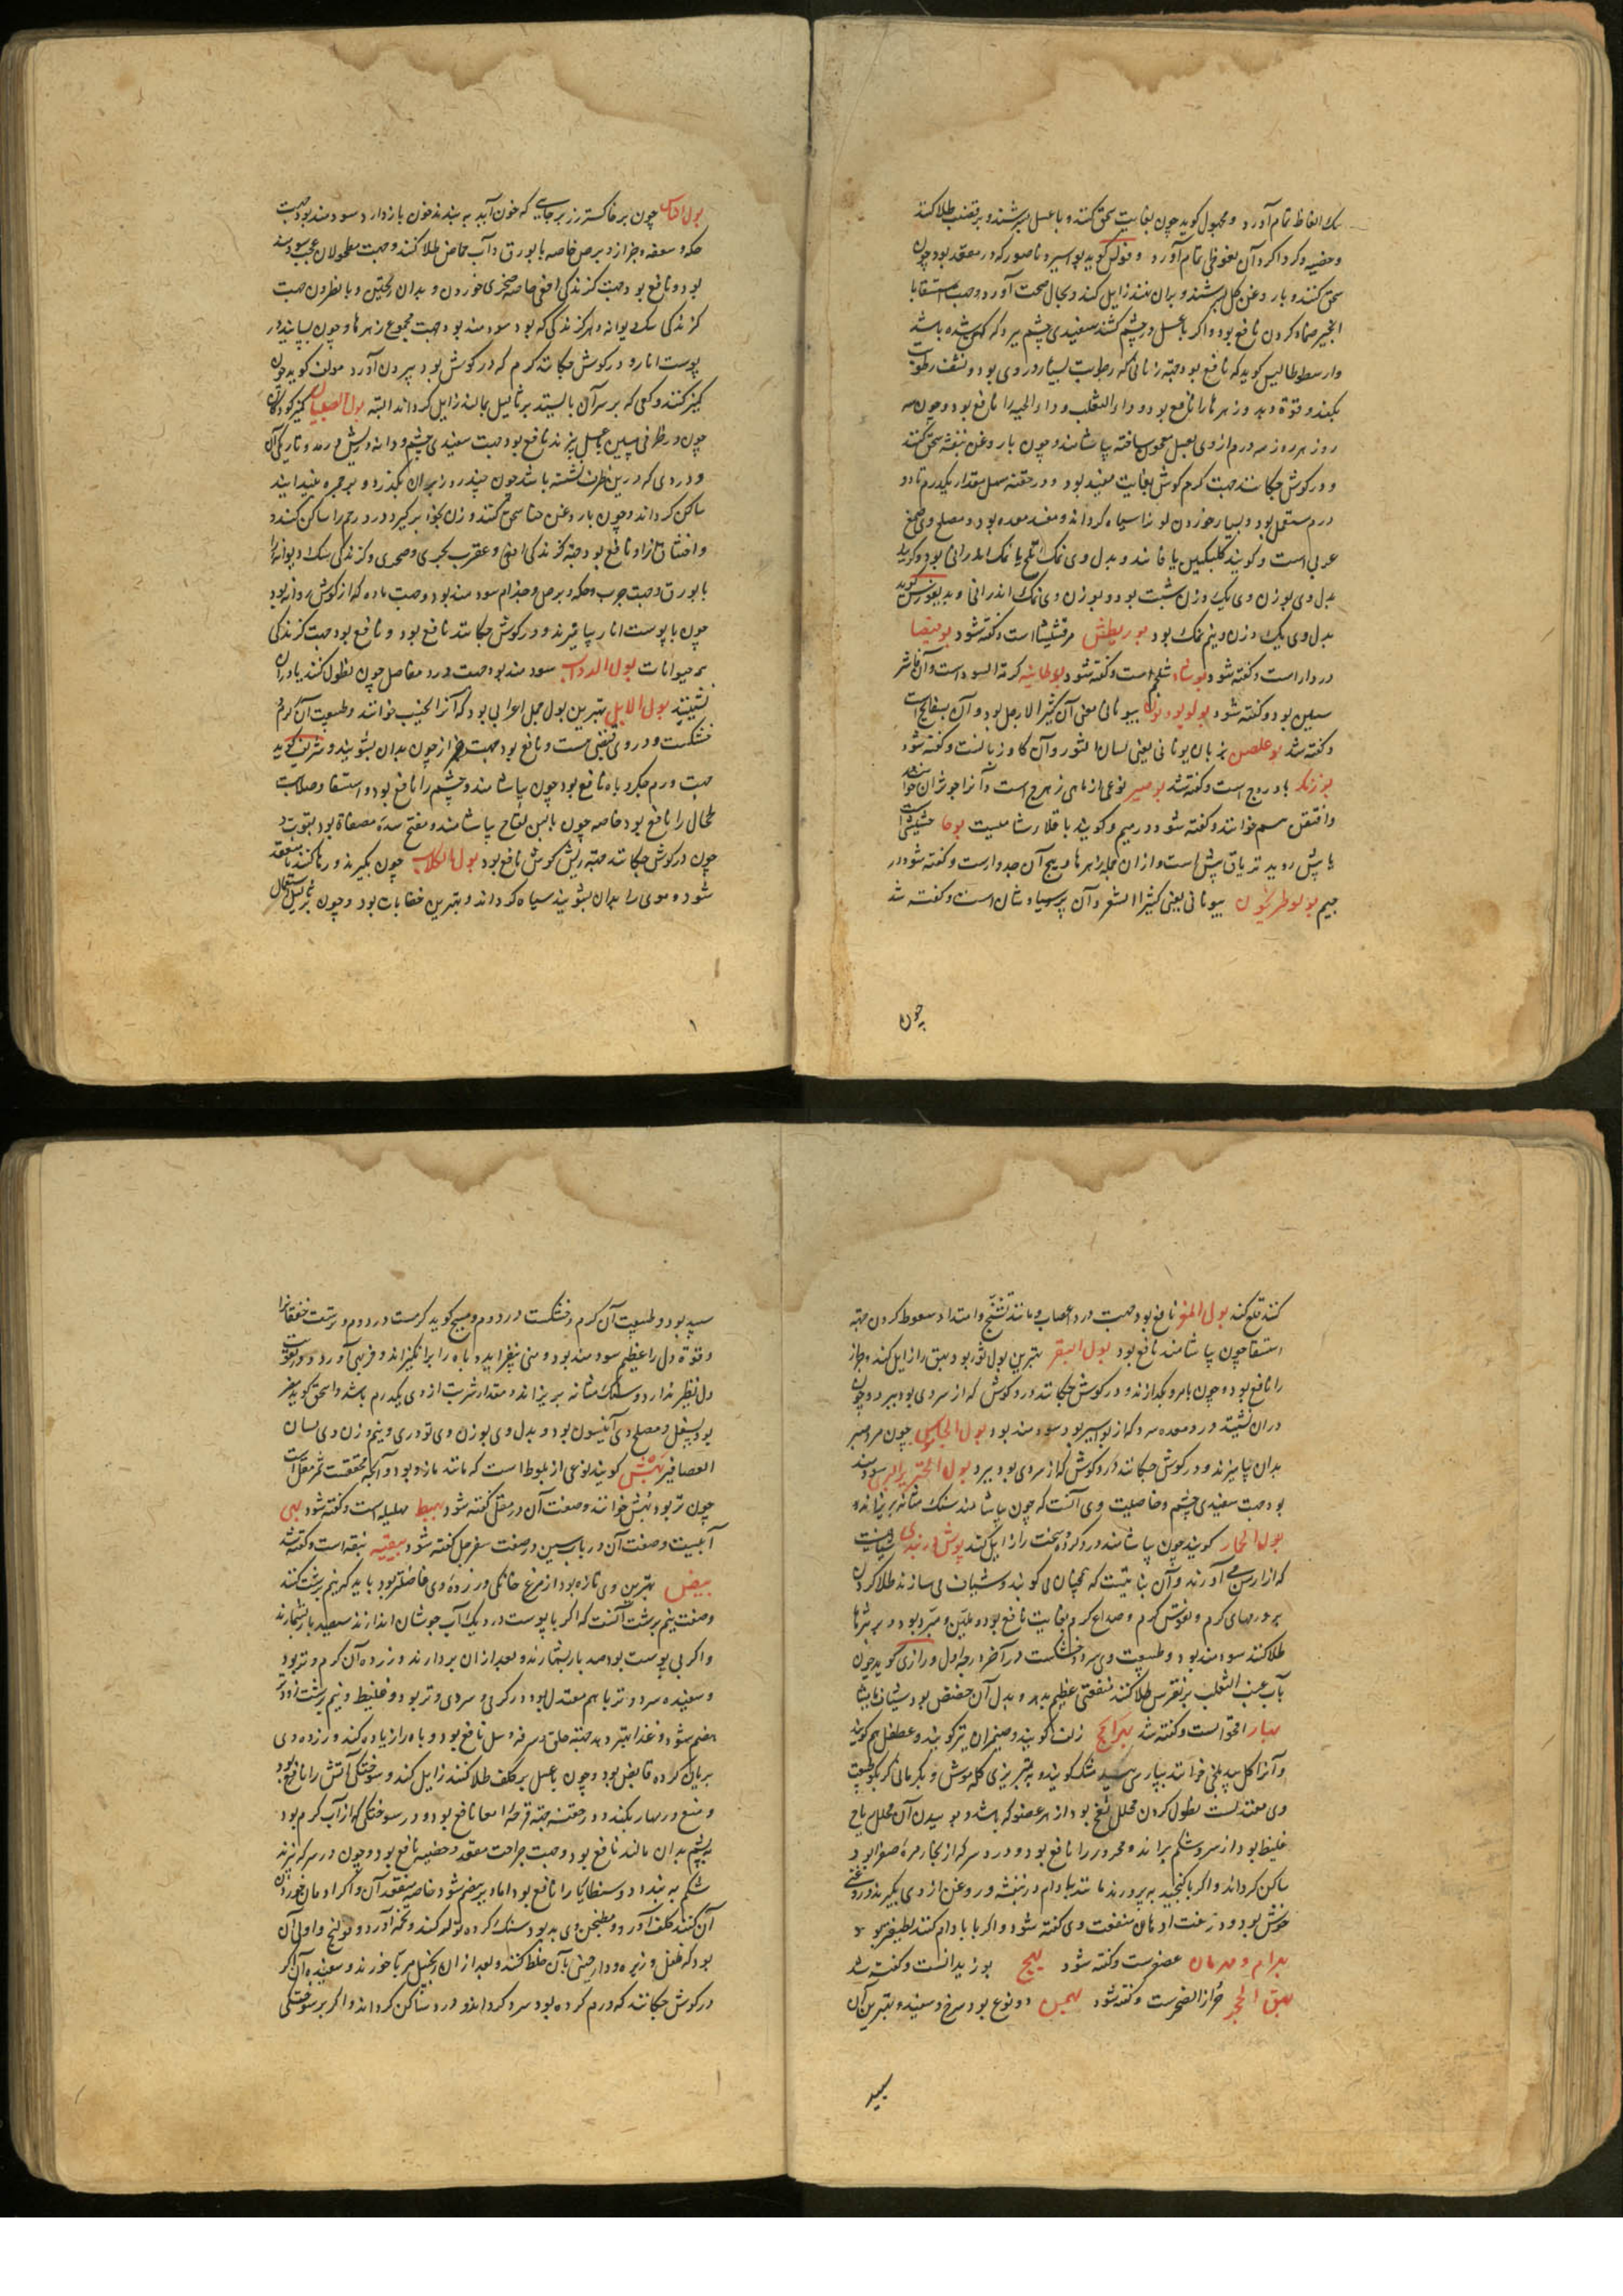 یک انعاظ تمام آورد و مجهول کوید چون بغایت سحق کنند و باعسل بسرشند و بر قضیب طلا کنند
و خصیه و کرداکرد آن نعوظی تمام آورد و فولس کوید بواسیر و ناصور که در مقعد بود چون
سحق کنند و با روغن کل بسرشند و بران نهند زایل کند و بحال صحت آورد و جهت استسقا با
انجیر ضماد کردن نافع بود و اکر با عسل در چشم کشند سفیدی چشم ببرد که کهن شده باشد
و ارسطوطالیس کوید که نافع بود جهة زنانی که رطوبت بسیار در وی بود و نشف رطوبت
بکند و قوة دهد و زهرها را نافع بود و داء الثعلب و داء الحیه را نافع بود و چون سه
روز هر روز سه درم از وی بعسل معجون ساخته بیاشامند و چون با روغن بنفشه سحق کنند
و در کوش چکانند جهت کرم کوش بغایت مفید بود و در حقنه مسهل مقدار یکدرم تا دو
درم مستعمل بود و بسیار خوردن لون را سیاه کرداند و مفسد معده بود و مصلح وی صمغ
عربی است و کویند کلبکبین یا فانید و بدل وی نمک تلخ یا نمک اندرانی بود و کوید
بدل وی بوزن وی یک وزن شبت بود و بوزن وی نمک اندرانی و بدیغورس کوید
بدل وی یک وزن و نیم نمک بود بوریطش مرقشیشا است و کفته شود بوقیصا
دردار است و کفته شود بوشاد شلجم است و کفته شود بوطانیه کرمة السودا ست و آن فاشر
ستین بود و کفته شود بولوبودیون بیونانی معنی آن کثیر الارجل بود و آن بسفایج است
و کفته شد بوغلصن بزبان یونانی یعنی لسان الثور و آن کاو زبانست و کفته شود
بوزنکر بادروج است و کفته شد بوصیر نوعی از ماهی زهرج است و آنرا جوثران خوانند
و افتقن سم خوانند و کفته شود در میم و کویند باقلاء شامیست بوحا حشیشی است
با بیش روید تریاق بیش است و ازان جمله زهرها و بیخ آن جدوارست و کفته شود در
جیم بولوطریخون بیونانی یعنی کثیر الشعر و آن پرسیاوشان است و کفته شد
چون
بول انسان چون بر خاکستر رز بر جایی که خون آید به بندند خون باز دارد و سودمند بود جهت
حکه و سعفه و جزاز و برص خاصه با بورق و آب حماض طلا کنند و جهت مطحولان عجیب سودمند
بود و نافع بود جهت کزندکی افعی خاصه صخری خوردن و بدان ریختن و با نطرون جهت
کزندکی سک دیوانه و هر کزندکی که بود سودمند بود جهت مجموع زهرها و چون بپایند در
پوست انار و در کوش چکانند کرم که در کوش بود بیرون آورد مولف کوید چون
کمیز کنند و کفی که بر سر آن بایستد بر ثالیل بمالند زایل کرداند البته بول الصبیان کمیز کودکان
چون در ظرفی مسین با عسل بپزند نافع بود جهت سفیدی چشم و دانه و ریش و رمد و تاریکی آن
و دردی که در بن ظرف نشسته باشد چون چند روز بران بکذرد و بر حمره بیندایند
ساکن کرداند و چون با روغن حنا سحق کنند و زن بخود برکیرد درد رحم را ساکن کند و
و اختناق را نافع بود جهة کزندکی افعی و عقرب بحری و صحری و کزندکی سک دیوانه را
با بورق و جهت جرب و حکه و برص و جذام سودمند بود و جهت ماده که از کوش روانه بود
چون با پوست انار بیامیزند و در کوش چکانند نافع بود و نافع بود جهت کزندکی
همه حیوانات بول الدواب سودمند بود جهت درد مفاصل چون نطول کنند یا دران
نشینند بول الابل بهترین بول جمل اعرابی بود که آنرا نجیب خوانند و طبیعت آن کرم و
خشکست و در وی قبضی هست و نافع بود جهت جزاز چون بدان بشویند و شریف کوید
جهت ورم جکر و باه نافع بود چون بیاشامند و چشم را نافع بود و استسقا و صلابت
طحال را نافع بود خاصه چون بالبن لقاح بیاشامند و مفتح سده مصفاة بود بقوت و
چون در کوش چکانند جهة ریش کوش نافع بود بول الکلاب چون بکیرند و رها کنند تا منعقد
شود و موی را بدان بشویند سیاه کرداند و بهترین خضابات بود و چون بر ثالیل استعمال
کنند قلع کند بول المعز نافع بود جهت درد اعصاب و مانند تشنج و امتداد سعوط کردن جهة
استسقا چون بیاشامند نافع بود بول البقر بهترین بول ثور بود و بهق را زایل کند و جزاز
را نافع بود و چون با مر بکدازند و در کوش چکانند درد کوش که از سردی بود ببرد و چون
دران نشینند درد معده سرد که از بواسیر بود سودمند بود بول الجاموس چون مر و عنبر
بدان بیامیزند و در کوش چکانند درد کوش که از سردی بود ببرد بول الخنزیر البری سودمند
بود جهت سفیدی چشم و خاصیت وی آنست که چون بیاشامند سنک مثانه بریزاند و
بول الحمار کویند چون بیاشامند درد کرده سخت را زایل کند بوش دربندی شیافیست
که از ارمن می آورند و آن نباتیست که همچنان می کوبند و شیاف می سازند طلا کردن
بر ورمهای کرم و نقرس کرم و صداع کرم بغایت نافع بود و ملین و مبرد بود و بر بثرها
طلا کنند سودمند بود و طبیعت وی سرد و خشکست در آخر درجه اول و رازی کوید چون
بآب عنب الثعلب بر نقرس طلا کنند منفعتی عظیم بدهد و بدل آن حضض بود شیاف مامیثا
بهار اقحوانست و کفته شد بهرامج رنف کویند و ضیمران نیز کویند و عطفل هم کویند
و آنرا کل بید بلخی خوانند بپارسی بید مشک کویند و به تبریزی کله موش و بکرمانی کربکو طبیعت
وی معتدلست نطول کردن محلل نفخ بود از هر عضو که باشد و بوییدن آن محلل ریاح
غلیظ بود از سر و شکم براند و محرور را نافع بود و درد سر که از بخار مره صفرا بود
ساکن کرداند و اکر با کنجد به پرورند مانند بادام در بنفشه و روغن از وی بکیرند روغنی
خوش بود و در نعت ادهان منفعت وی کفته شود و اکر با بادام کنند لطیف تر بود
بهرام و بهرمان عصفرست و کفته شود بهج بوزیدانست و کفته شد
بهق الحجر حزاز الصخرست و کفته شود بهمن دو نوع بود سرخ و سفید و بهترین آن
سپید
سپید بود و طبیعت آن کرم و خشکست در دوم و مسیح کوید کرمست در دوم و رتبت خفقان را
و قوة دل را عظیم سودمند بود و منی بیفزاید و باه را برانکیزاند و فربهی آورد و در تقویت
دل نظیر ندارد و سنک مثانه بریزاند و مقدار شربت از وی یکدرم باشد و اسحق کوید مضر
بود بسفل و مصلح وی آنیسون بود و بدل وی بوزن وی تودری و نیم وزن وی لسان
العصافیر بهش کویند نوعی از بلوط است که مانند مازو بود و آنچه محققست ثمر مقل است
چون تر بود بهش خوانند و صفت آن در مقل کفته شود بهیط بهلیله است و کفته شود بهی
آبیست و صفت آن در باب سین در صفت سفرجل کفته شود بیقیه نبقه است و کفته شد
بیض بهترین وی تازه بود از مرغ خانکی و زرده وی فاضلتر بود باید که نیم برشت کنند
و صفت نیم برشت آنست که اکر با پوست در دیک آب جوشان اندازند سیصد بار بشمارند
و اکر بی پوست بود صد بار بشمارند و بعد ازان بردارند و زرده آن کرم و تر بود
و سفیده سرد و تر با هم معتدل بود در کرمی و سردی و تر بود و غلیظ و نیم برشت زودتر
هضم شود و غذا بهتر دهد جهة حلق و سرفه و سل نافع بود و باه را زیاده کند و زرده وی
بریان کرده قابض بود و چون با عسل بر کلف طلا کنند زایل کند و سوختکی آتش را نافع بود
و منع ورمها بکند و در حقنه جهة قرحه امعا نافع بود و در سوختکی که از آب کرم بود
به پشم بدان مالند نافع بود و جهت جراحت مقعد و خصیه نافع بود و چون در سرکه پزند
شکم به بندد و دوسنطاریا را نافع بود اما دیر هضم شود خاصه منعقد آن و اکر ادمان خوردن
آن کنند کلف آورد و مطجن وی بد بود سنک کرده تولد کند و تخمه آورد و قولنج و اولی آن
بود که فلفل و زیره و دارچینی بآن خلط کنند و بعد ازان زنجبیل مربا خورند و سفیده آن اکر
در کوش چکانند که ورم کرده بود سرد کرداند و درد ساکن کرداند و اکر بر سوختکی